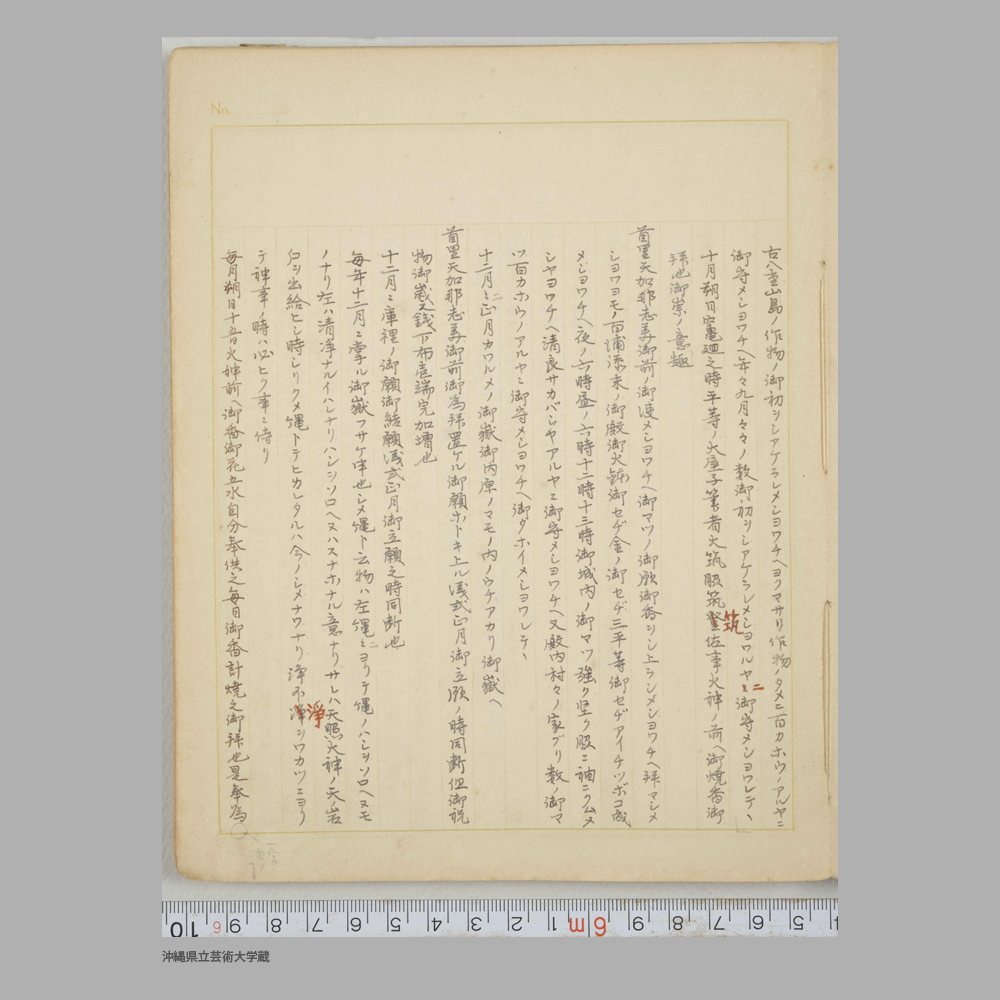 No.
古八重山島ノ作物ノ御初ヲシアケラレメシヨワチヘヨクマサリ作物ノタメニ百カホウノアルヤニ
御守メシヨワチヘ年々九月々々ノ数御初ヲシアケラレメシヨワルヤニ御守メシヨワレデヽ
十月朔日竃廻之時平等ノ火庫子筆者火筑股筑登佐事火神ノ前ヘ御焼香御
拝也御崇ノ意趣
首里天加那志美御前ノ御渡メシヨワチヘ御マツノ御願御香ヲシ上ランメシヨワチヘ拝マシメ
シヨワヨモノ百浦添末ノ御殿御火鉢御セヂ金ノ御セヂ三平等御セヂアイチツボコ成
メシヨワチヘ夜ノ六時昼ノ六時十二時十三時御城内ノ御マツ強ク堅ク股ニ袖ニクムメ
シヤヨワチヘ清良サカバシヤアルヤニ御守メシヨワチヘ又殿内村々ノ家ブリ数ノ御マ
ツ百カホウノアルヤニ御守メシヨワチヘ御タホイメシヨワレデヽ
十二月ニ正月カワルメノ御嶽御内原ノマモノ内ノウチアカリ御嶽ヘ
首里天加那志美御前御為拝置ケル御願ホトキ上ル儀式正月御立願ノ時同断但御説
物御嵗又銭下布壱端完加増也
十二月ニ庫裡ノ御願御結願儀式正月御立願之時同断也
毎年十二月ニ掌ル御嶽フサケ申也シメ縄ト云物ハ左縄ニヨリテ縄ノハシヲソロヘヌモ
ノナリ左ハ清浄ナルイハレナリハシヲソロヘヌハスナホナル意ナリサレハ天照大神ノ天ノ岩
戸ヲ出給ヒシ時シリクメ縄トテヒカレタルハ今ノシメナワナリ浄不浄ヲワカツニヨリ
テ神事ノ時ハ必ヒク事ニ侍リ
毎月朔日十五日火神前ヘ御香御花五水自分奉供之毎日御香計焼之御拝也是奉為
筑
ニ
浄
10 9 8 7 6 5 4 3 2 1 6m 9 8 7 6 5
沖縄県立芸術大学蔵